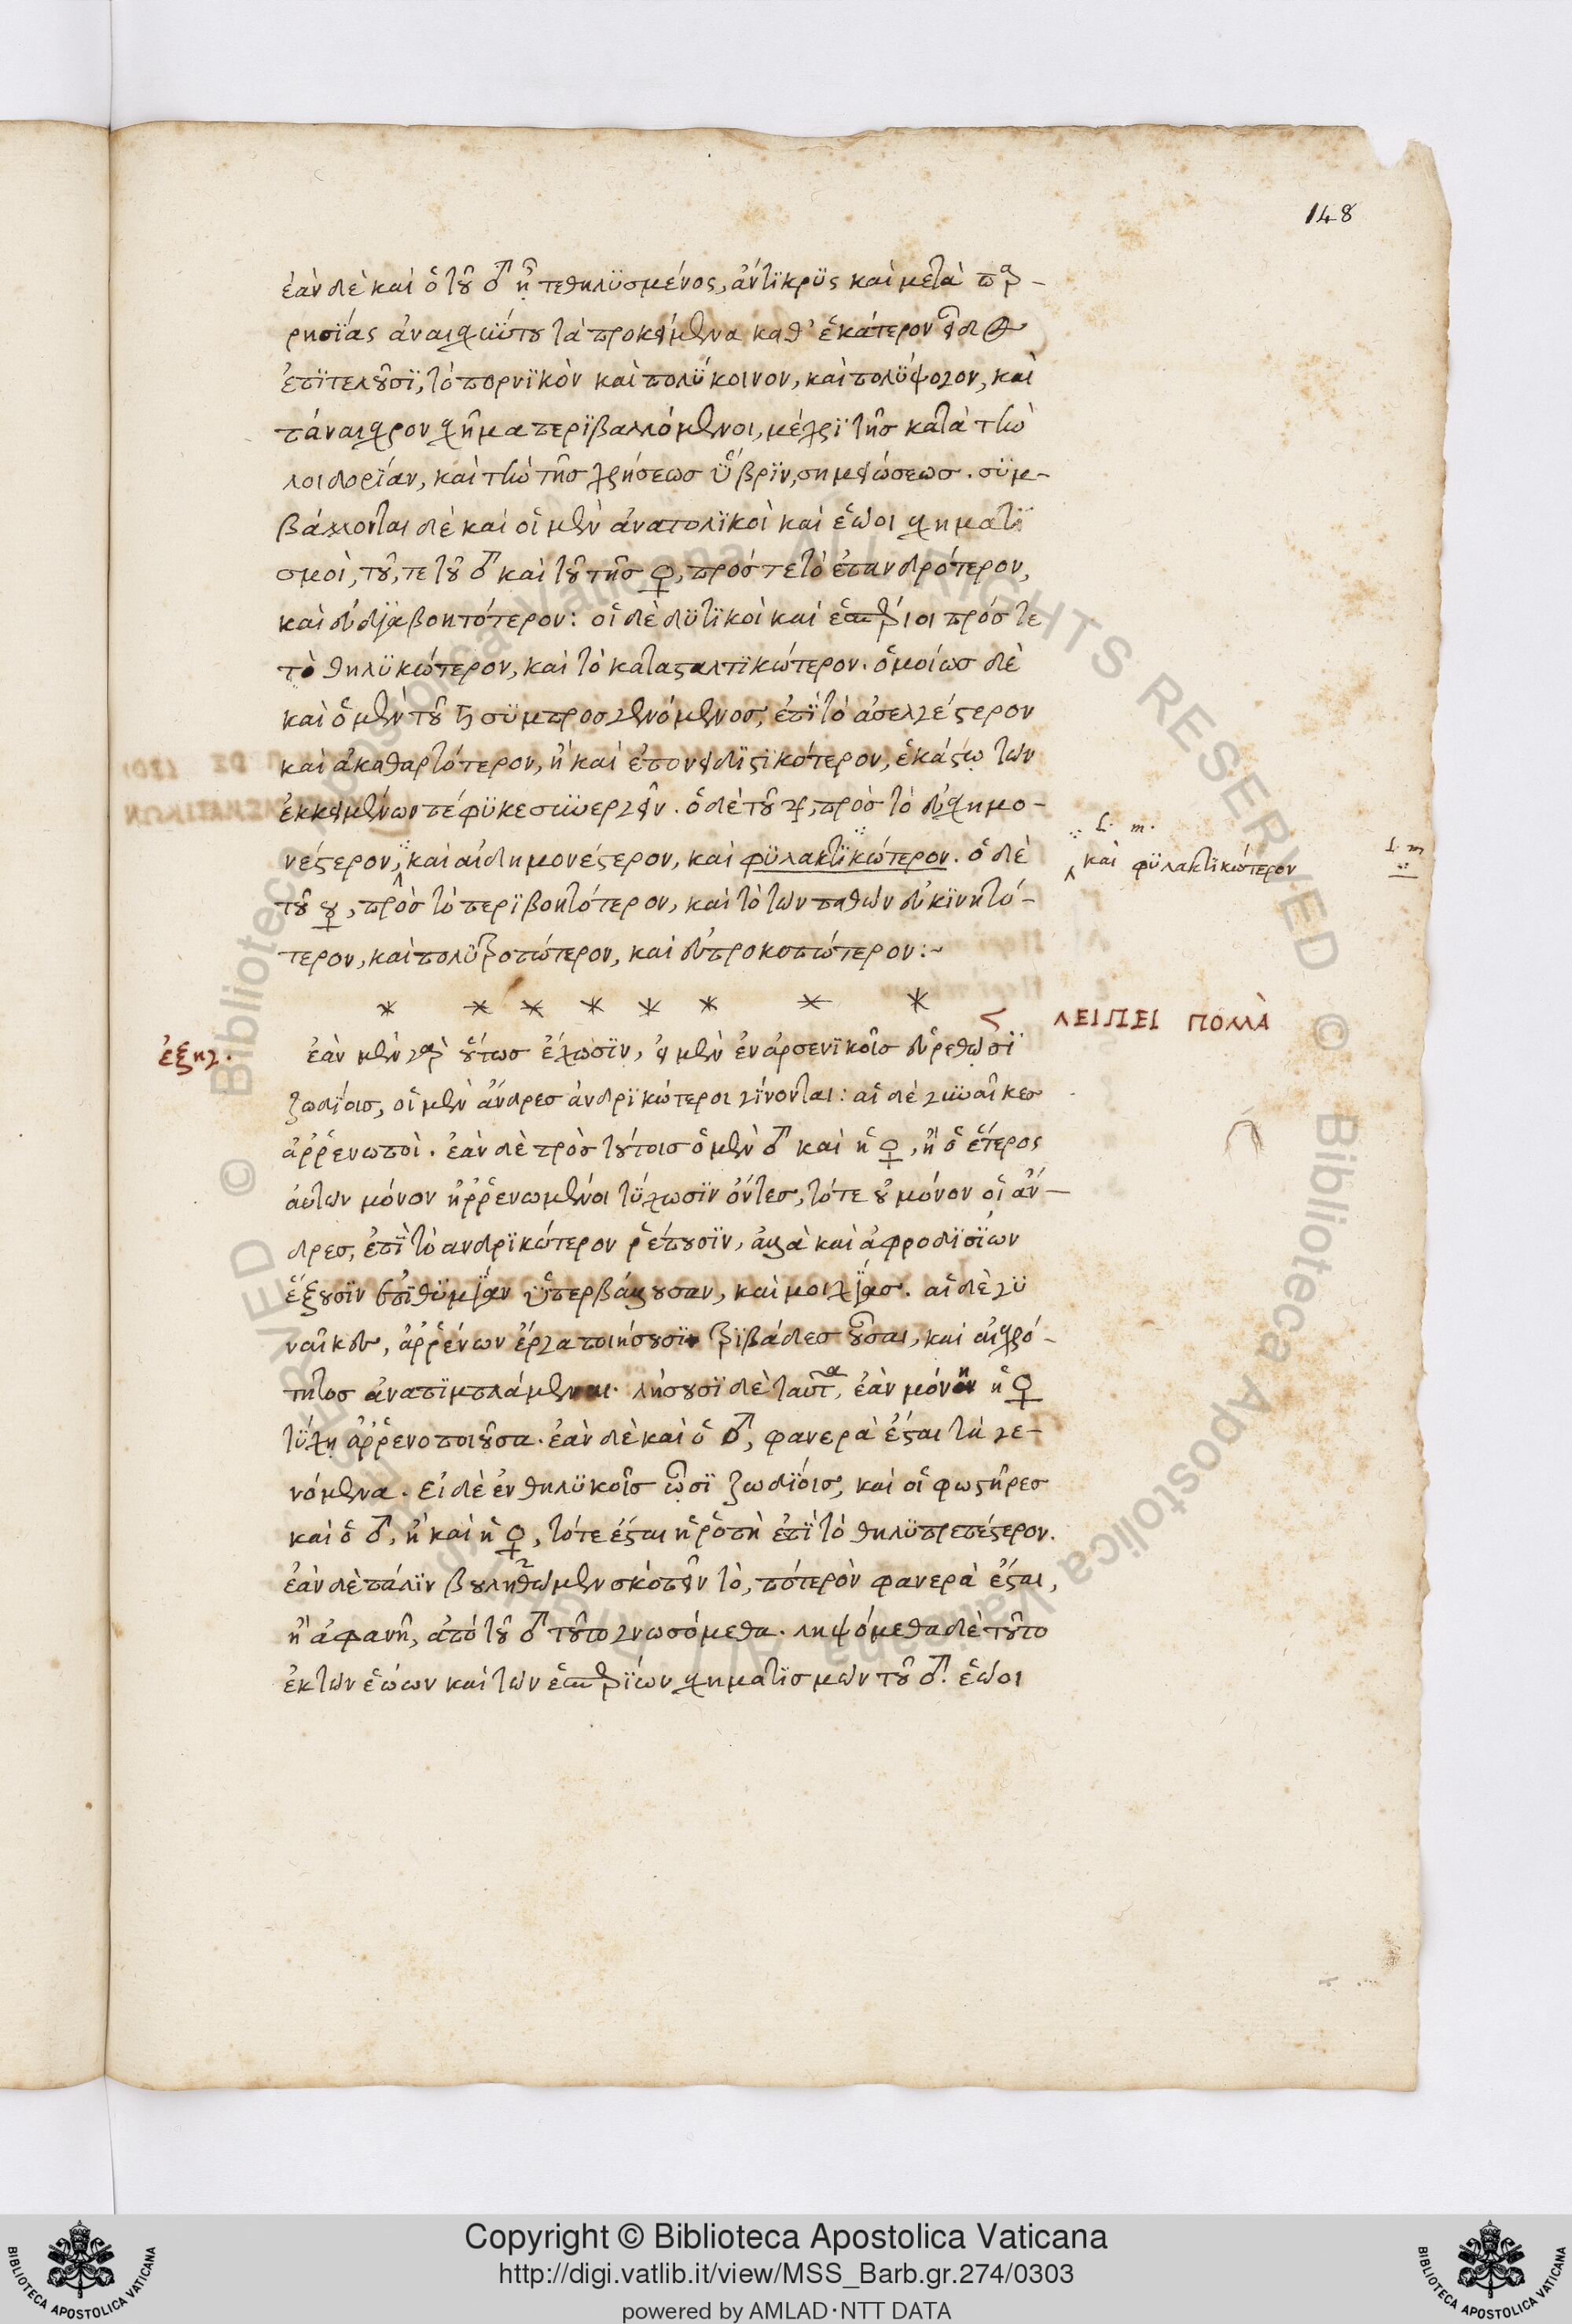 148
ἐὰν δὲ καὶ ὁ τοῦ ♂ ᾖ τεθηλϋσμένος, ἀντϊκρϋς καὶ μετὰ παρ-
ρησϊάς ἀναισχυντου τὰ προκείμενα καθ' ἑκάτερον εἶδος
ἐπϊτελοῦσϊ, τὸ πορνϊκὸν καὶ πολϋκοινον, καὶ πολϋψογον, καὶ
πάναισχρον σχῆμα περϊβαλλόμενοι, μέχρϊ τῆς κατὰ τὴν
λοιδορίαν, καὶ τὴν τῆς χρήσεως ὕβρϊν, σημειώσεως. σϋμ-
βάλλονται δὲ καὶ οἱ μὲν ἀνατολϊκοὶ καὶ ἑῶοι σχηματϊ
σμοὶ, τοῦ, τε τοῦ ♂ καὶ τοῦ τῆς ♀, πρός τε τὸ ἐπανδρότερον,
καὶ εὐδϊαβοητότερον: οἱ δὲ δϋτϊκοὶ καὶ ἑσπέριοι πρός τε
τὸ θηλϋκώτερον, καὶ τὸ καταςαλτϊκώτερον. ὁμοίως δὲ
καὶ ὁ μὲν τοῦ ♄ σϋμπροσγενόμενος, ἐπϊ τὸ ἀσελγέςερον
καὶ ἀκαθαρτότερον, ἢ καὶ ἐπονειδϊςϊκότερον, ἑκάςῳ τῶν
ἐκκειμένων πέφϋκε συνεργεῖν. ὁ δὲ τοῦ ♃, πρὸς τὸ εὐσχημο-
νέςερον, καὶ αἰδημονέςερον, καὶ φϋλακτϊκώτερον. ὁ δὲ
L. m.
καὶ φϋλακτϊκώτερον
L. m
τοῦ ☿, πρὸς τὸ περϊβοητότερον, καὶ τὸ τῶν παθῶν εὐκϊνητό-
τερον, καὶ πολϋτροπώτερον, καὶ εὐπροκοπώτερον:~
* * * * * * * *
ΛΕΙΠΕΙ ΠΟΛΛᾺ
ἐξηγ.
ἐὰν μὲν γὰρ οὕτως ἔχωσϊν, εἰ μὲν ἐν ἀρσενϊκοῖς εὑρεθῶσϊ
ζωδίοις, οἱ μὲν ἄνδρες ἀνδρϊκώτεροι γίνονται: αἱ δὲ γυναῖκες
ἀῤῥενωποὶ. ἐὰν δὲ πρὸς τούτοις ὁ μὲν ♂ καὶ ἡ ♀, ἢ ὁ ἕτερος
ἀυτῶν μόνον ἠῤῥενωμένοι τϋχωσϊν ὄντες, τότε οὐ μόνον οἱ ἄν-
δρες, ἐπϊ τὸ ανδρϊκώτερον ῥέπουσϊν, ἀλλὰ καὶ ἀφροδϊσϊων
ἕξουσϊν ἐπϊθϋμϊαν ὑπερβάλλουσαν, καὶ μοιχϊας. αἱ δὲ γϋ
ναῖκες, ἀῤῥένων ἔργα ποιήσουσϊ τρϊβάδες οὖσαι, καὶ αἰσχρό-
τητος ἀναπϊμπλάμεναι. λήσουσϊ δὲ ταῦτα, ἐὰν μόνη ἡ ♀
τϋχῃ ἀῤῥενοποιοῦσα. ἐὰν δὲ καὶ ὁ ♂, φανερὰ ἔςαι τὰ γε-
νόμενα. εἰ δὲ ἐν θηλϋκοῖς ὦσϊ ζωδϊοις, καὶ οἱ φωςῆρες
καὶ ὁ ♂, ἢ καὶ ἡ ♀, τότε ἔςαι ἡ ῥοπὴ ἐπϊ τὸ θηλϋπρεπέςερον.
ἐὰν δὲ πάλϊν βουληθῶμεν σκόπειν τὸ, πότερὸν φανερὰ ἔςαι,
ἢ ἀφανῆ, ἀπὸ τοῦ ♂ τοῦτο γνωσόμεθα. ληψόμεθα δὲ τοῦτο
ἐκ τῶν ἑώων καὶ τῶν ἑσπερϊων σχηματϊσμῶν τοῦ ♂. ἑῶοι
Copyright © Biblioteca Apostolica Vaticana
http://digi.vatlib.it/view/MSS_Barb.gr.274/0303
powered by AMLAD·NTT DATA